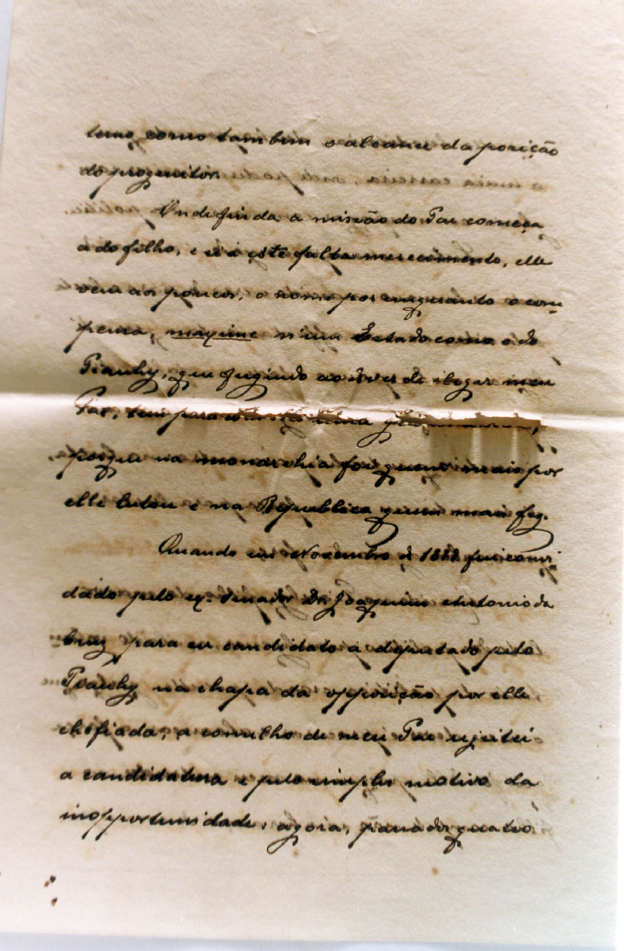 como tambem o alcance da posição
do progenitor.
Onde finda a missão do Pae começa
a do filho, e si a este falta merecimento, elle
o com-
pensa, maxime n'um Estado como o do
Piauhy, que fugindo ao dever de eleger meu
Pae, tem para
porque na monarchia foi quem mais por
elle lutou e na Republica quem mais fez.
Quando em Novembro de 1888 fui convi-
dado pelo ex-Senador Dr Joaquim Antonio da
Cruz para ser candidato a deputado pelo
Piauhy na chapa da opposição por elle
chefiada, a conselho de meu Pae rejeitei
a candidatura e pelo simples motivo da
inopportunidade, agora, passados quatro